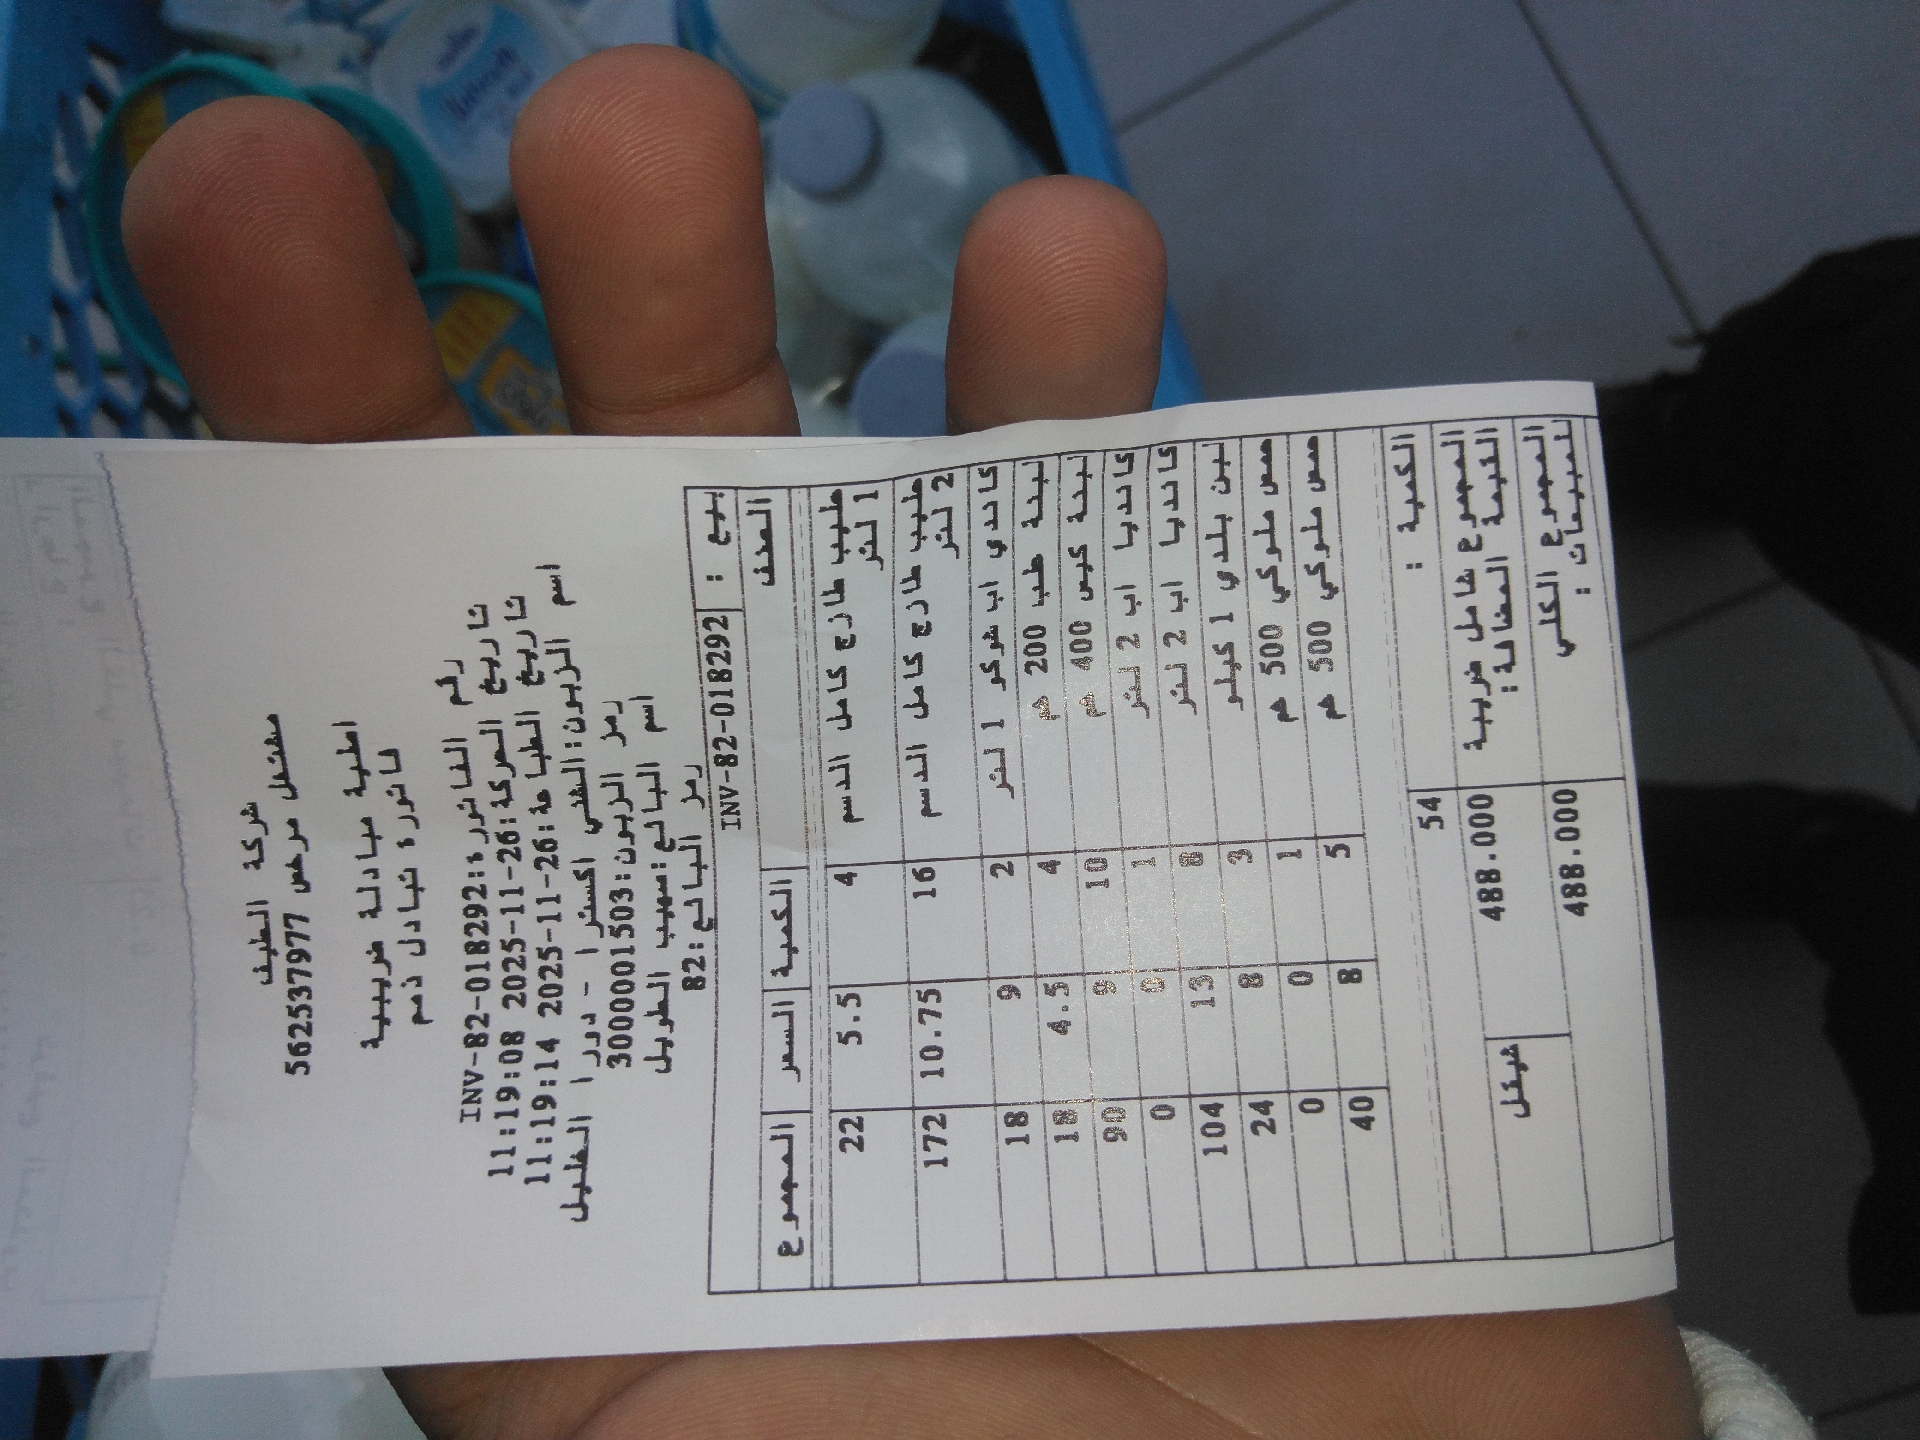 شركة الطيف
مشتغل مرخص 562537977
اطية مبادلة ضريبية
فاتورة تبادل ذمم
رقم الفاتورة:INV-82-018292
تاريخ الحركة:26-11-2025 11:19:08
تاريخ الطباعة:26-11-2025 11:19:14
اسم الزبون:الشني اكسترا - دورا الخليل
رمز الزبون:3000001503
اسم البائع:صهيب الطويل
رمز البائع:82
بيع : INV-82-018292
الصنف الكمية السعر المجموع
حليب طازج كامل الدسم 1 لتر 4 5.5 22
حليب طازج كامل الدسم 2 لتر 16 10.75 172
كاندي اب شوكو 1 لتر 2 9 18
لبنة طب 200 غم 4 4.5 18
لبنة كيس 400 غم 10 9 90
كانديا اب 2 لتر 1 0 0
كانديا اب 2 لتر 8 13 104
لبن بلدي 1 كيلو 3 8 24
حمص ملوكي 500 غم 1 0 0
حمص ملوكي 500 غم 5 8 40
الكمية : 54
المجموع شامل ضريبة القيمة المضافة: 488.000 شيقل
المجموع الكلي للمبيعات : 488.000